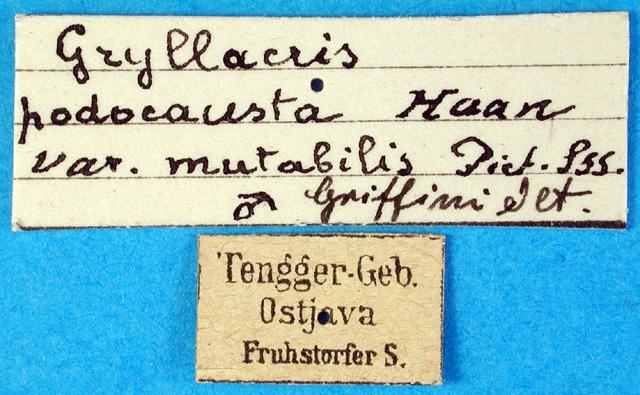 Gryllacris
podocausta Haan
var. mutabilis Pict. Sss.
♂ Griffini det.
Tengger-Geb.
Ostjava
Fruhstorfer S.